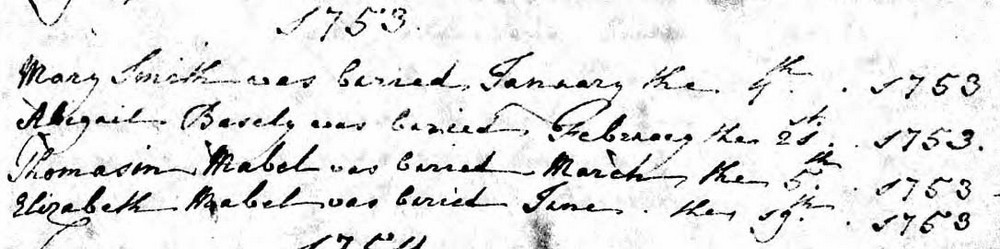 1753.
Mary Smith was buried January the 9th . 1753
Abigail Basely was buried February the 21st . 1753.
Thomasin Mabel was buried March the 5th . 1753
Elizabeth Mabel was buried June . the 19th . 1753
1754